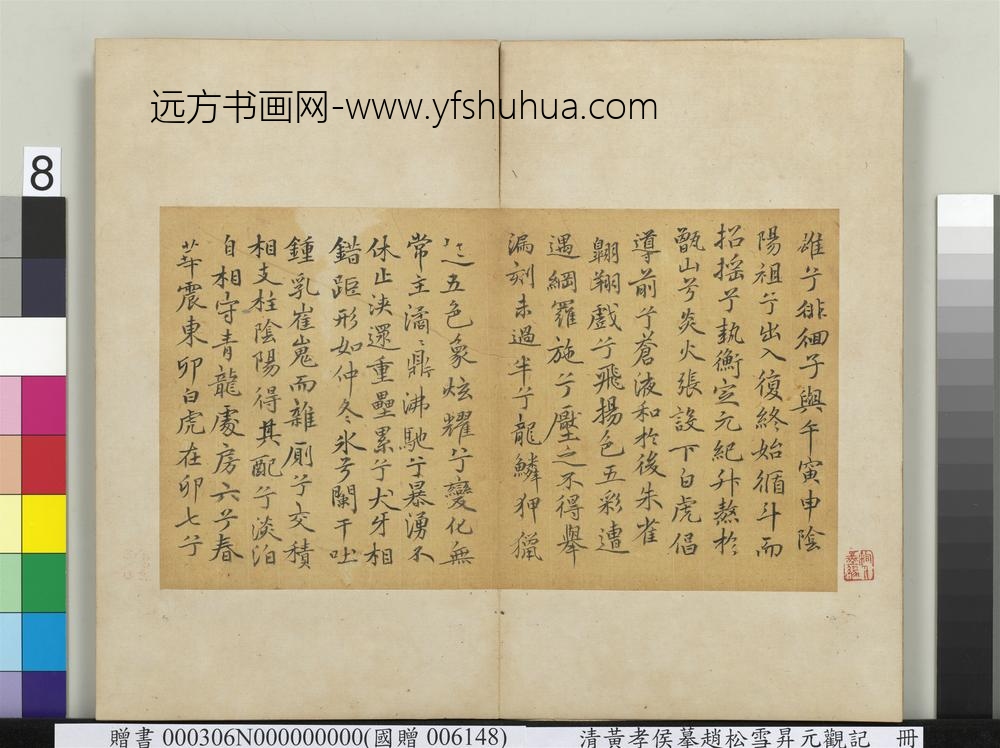 远方书画网-www.yfshuhua.com
8
雄兮徘徊子與午寅申陰
陽祖兮出入復終始循斗而
招摇兮執衡定元紀升熬於
甑山兮炎火張設下白虎倡
導前兮蒼液和於後朱雀
翱翔戲兮飛揚色五彩遭
遇網羅施兮壓之不得舉
漏刻未過半兮龍鱗狎獵
起五色象炫耀兮變化無
常主潏〻鼎沸馳兮暴湧不
休止浹還重疊累兮犬牙相
錯距形如仲冬氷兮闌干吐
鍾乳崔嵬而雜厠兮交積
相支柱陰陽得其配兮淡泊
自相守青龍處房六兮春
華震東卯白虎在卯七兮
贈書 000306N000000000(國贈 006148)
清黃孝侯摹趙松雪昇元觀記 冊